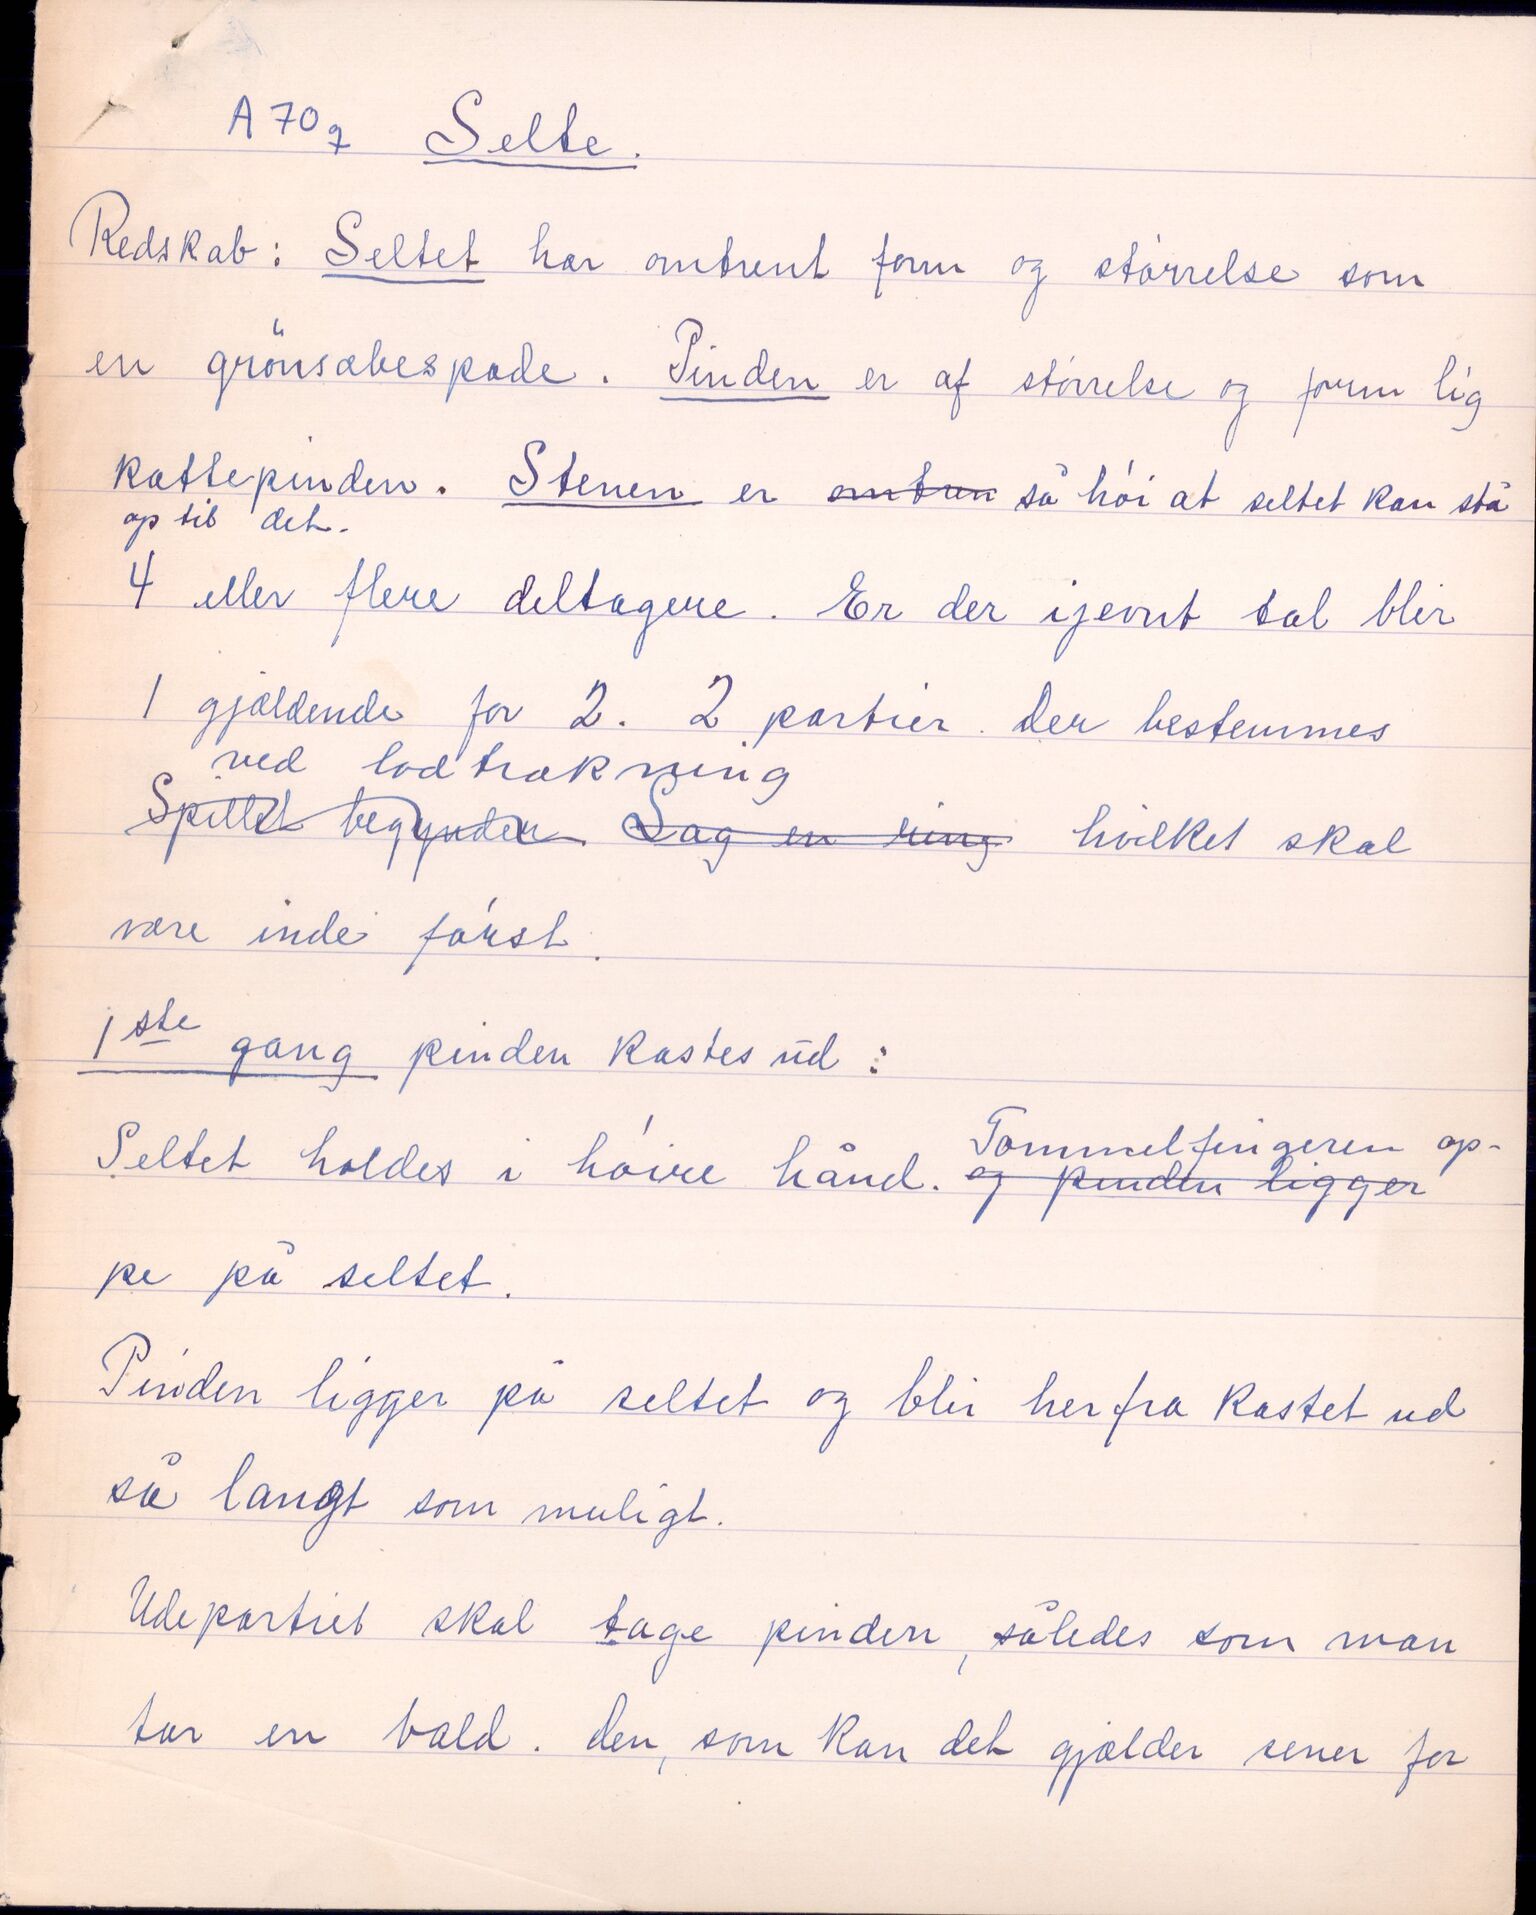 A 70 g Selte.
Redskab: Seltet har omtrent form og størrelse som
en grönsæbespade. Pinden er af størrelse og form lig
kattepinden. Stenen er omtren så hói at seltet kan stå
op til det.
4 eller flere deltagere. Er der ijevnt tal blir
1 gjældende for 2. 2 partier. Der bestemmes
ved lodtrækning
Spillet begynder. Lag en ring hvilket skal
være inde fórst.
1ste gang pinden kastes ud:
Tommelfingeren op-
Seltet holdes i hóire hånd. og pinden ligger
pe på seltet.
Pinden ligger på seltet og blir herfra kastet ud
så langt som muligt.
Udepartiet skal tage pinden, således som man
tar en bald. den, som kan det gjælder sener for